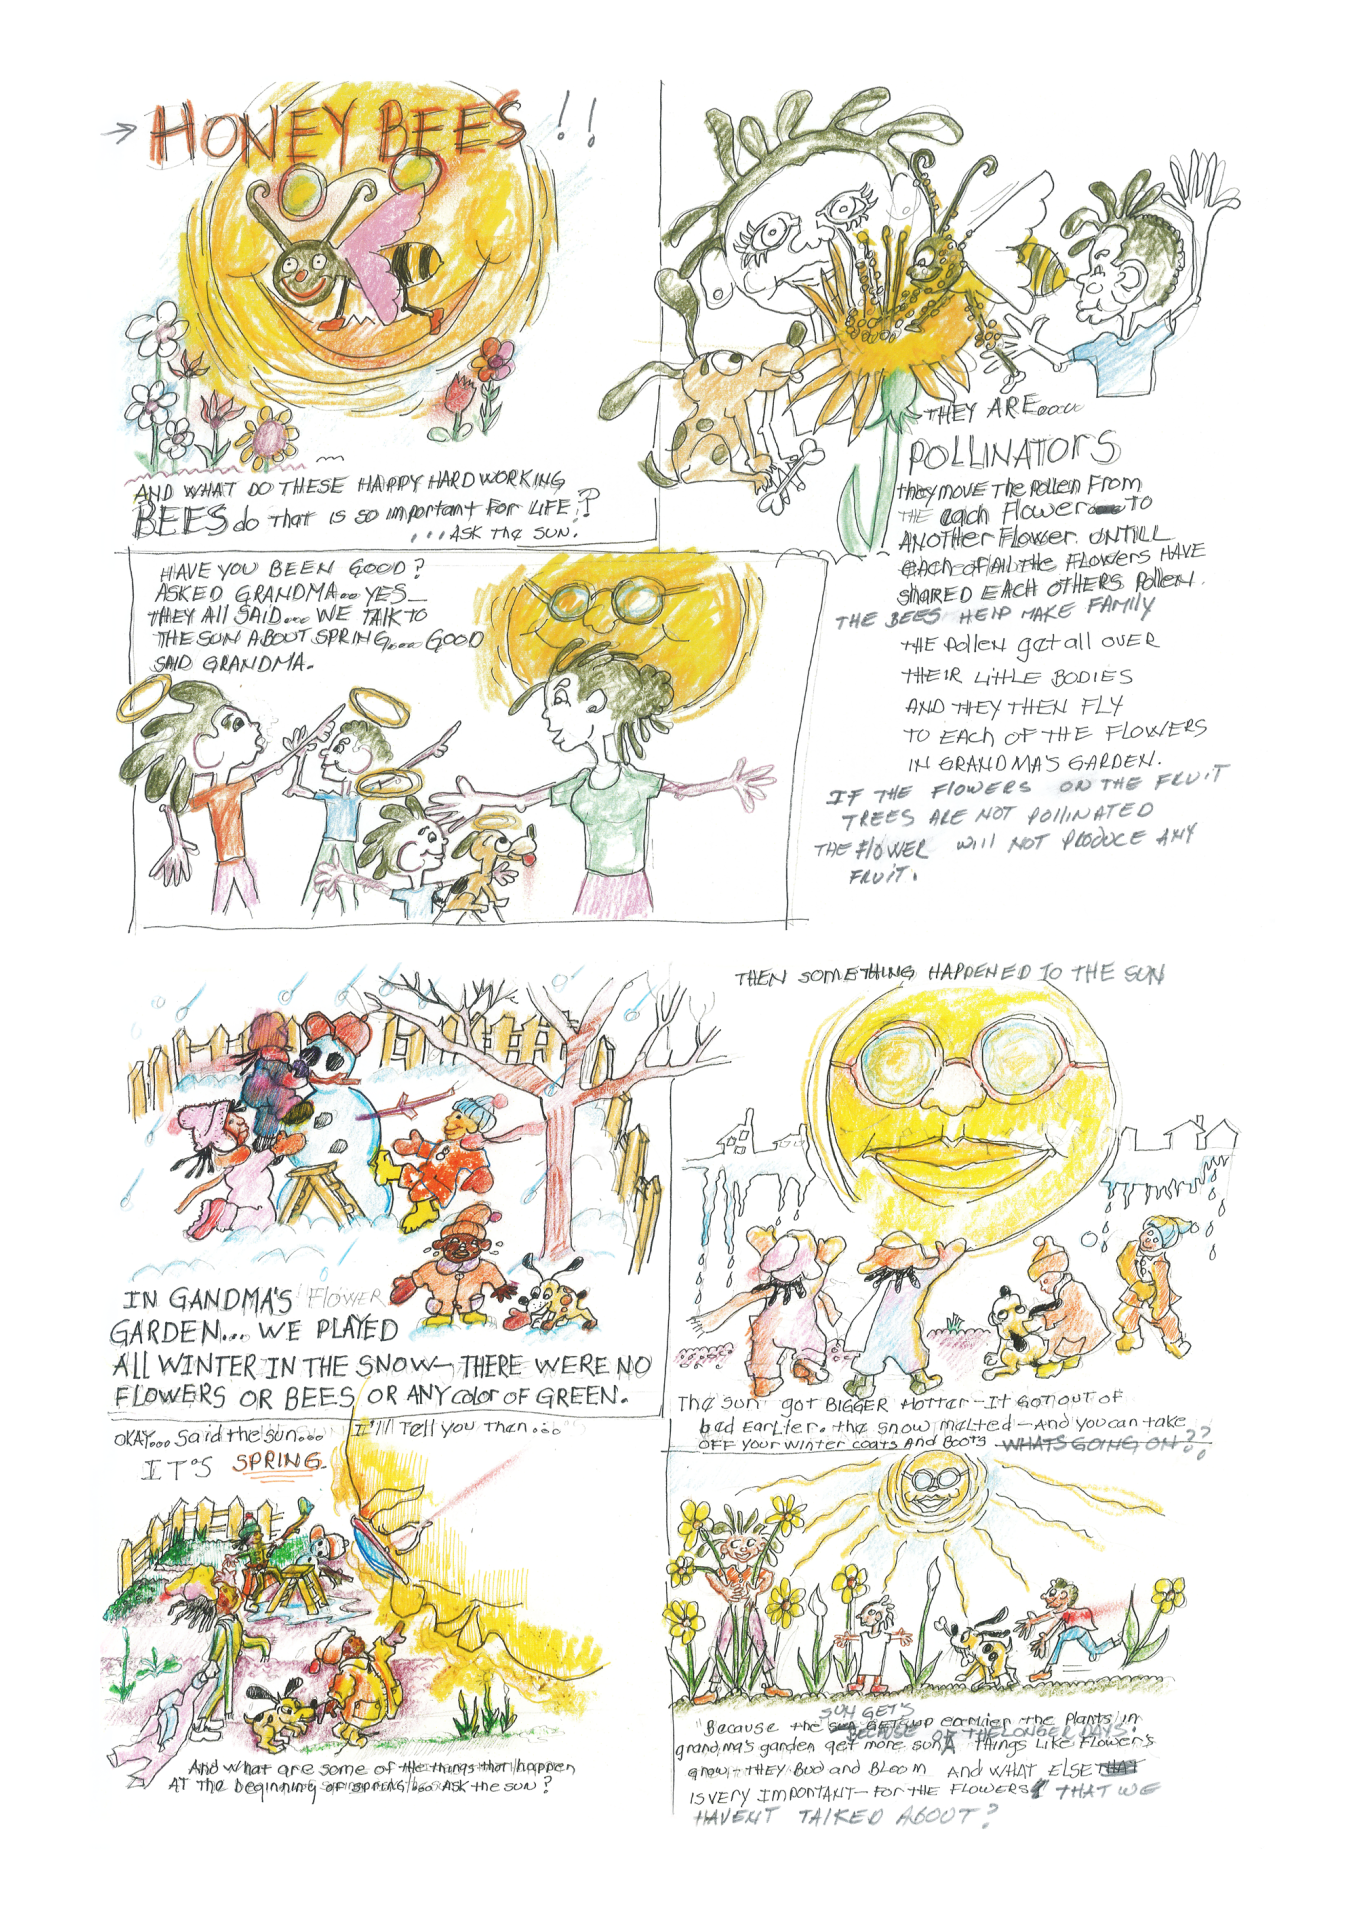 HONEY BEES !!
AND WHAT DO THESE HAPPY HARD WORKING
BEES do that is so important for LIFE??
...ASK the SUN.
THEY ARE.....
POLLINATORS
they move the pollen From
THE each Flower to
ANOTHER Flower UNTILL
each of All the Flowers HAVE
shared EACH OTHERS Pollen.
THE BEES HELP MAKE FAMILY
THE pollen get all OVER
THEIR LITTLE BODIES
AND THEY THEN FLY
TO EACH OF THE FLOWERS
IN GRANDMA'S GARDEN.
IF THE FLOWERS ON THE FRUIT
TREES ARE NOT POLLINATED
THE FLOWER will NOT PRODUCE ANY
FRUIT.
HAVE YOU BEEN GOOD?
ASKED GRANDMA.. YES_
THEY All SAID... WE TALK TO
THE SUN ABOUT SPRING.... GOOD
SAID GRANDMA.
IN GANDMA'S FLOWER
GARDEN... WE PLAYED
All WINTER IN THE SNOW- THERE WERE NO
FLOWERS OR BEES OR ANY color OF GREEN.
THEN SOMETHING HAPPENED TO THE SUN
The sun got BIGGER Hotter-It GOT OUT OF
bed EARLIER. the snow melted-And you can take
OFF your winter coats AND Boots WHATS GOING ON??
OKAY... said the sun... I'll Tell you then....
IT'S SPRING
And what are some of the things that happen
AT the beginning of spring... ASK the sun?
SUN GETS
"Because the sun GETS up earlier the plants in
BECAUSE OF THE LONGER DAYS!
grandma's garden get more sun Things Like Flowers
grow-THEY Bud and Bloom AND WHAT ELSE THAT
IS VERY IMPORTANT- FOR THE FLOWERS THAT WE
HAVEN'T TALKED ABOUT?